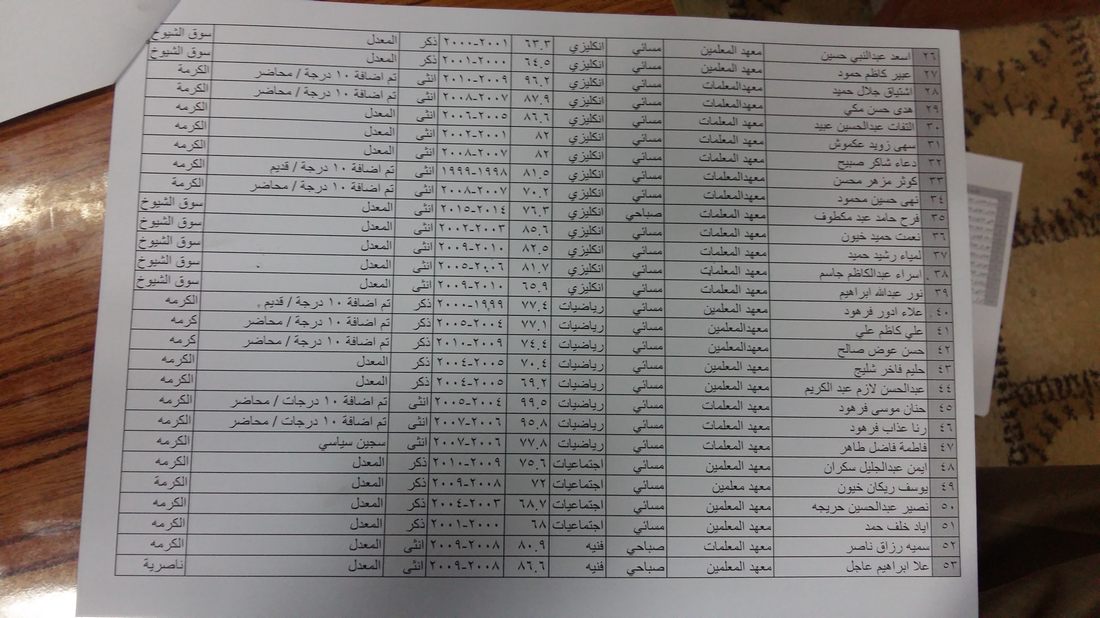 ٢٦ اسعد عبدالنبي حسين معهد المعلمين مسائي انكليزي ٦٣.٣ ٢٠٠١-٢٠٠٠ ذكر المعدل سوق الشيوخ
٢٧ عبير كاظم حمود معهد المعلمين مسائي انكليزي ٦٤.٥ ٢٠٠٠-٢٠٠١ ذكر المعدل سوق الشيوخ
٢٨ اشتياق جلال حميد معهدالمعلمات مسائي انكليزي ٩٦.٢ ٢٠٠٩-٢٠١٠ انثى تم اضافة ١٠ درجة / محاضر الكرمة
٢٩ هدى حسن مكي معهدالمعلمات مسائي انكليزي ٨٧.٩ ٢٠٠٧-٢٠٠٨ انثى تم اضافة ١٠ درجة / محاضر الكرمة
٣٠ التفات عبدالحسين عبيد معهد المعلمات مسائي انكليزي ٨٦.٦ ٢٠٠٦-٢٠٠٥ انثى المعدل الكرمه
٣١ سهى زويد عكموش معهد المعلمات مسائي انكليزي ٨٢ ٢٠٠١-٢٠٠٢ انثى المعدل الكرمه
٣٢ دعاء شاكر صبيح معهد المعلمات مسائي انكليزي ٨٢ ٢٠٠٧-٢٠٠٨ انثى المعدل الكرمه
٣٣ كوثر مزهر محسن معهد المعلمات مسائي انكليزي ٨١.٥ ١٩٩٨-١٩٩٩ انثى تم اضافة ١٠ درجة / قديم الكرمه
٣٤ نهى حسين محمود معهدالمعلمات مسائي انكليزي ٧٠.٢ ٢٠٠٧-٢٠٠٨ انثى تم اضافة ١٠ درجة / محاضر الكرمة
٣٥ فرح حامد عبد مكطوف معهد المعلمات صباحي انكليزي ٧٦.٣ ٢٠١٤-٢٠١٥ انثى المعدل سوق الشيوخ
٣٦ نعمت حميد خيون معهد المعلمات مسائي انكليزي ٨٥.٦ ٢٠٠٣-٢٠٠٢ انثى المعدل سوق الشيوخ
٣٧ لمياء رشيد حميد معهد المعلمات مسائي انكليزي ٨٢.٥ ٢٠١٠-٢٠٠٩ انثى المعدل سوق الشيوخ
٣٨ اسراء عبدالكاظم جاسم معهد المعلمات مسائي انكليزي ٨١.٧ ٢٠٠٦-٢٠٠٥ انثى المعدل سوق الشيوخ
٣٩ نور عبدالله ابراهيم معهد المعلمات مسائي انكليزي ٦٥.٩ ٢٠١٠-٢٠٠٩ انثى المعدل سوق الشيوخ
٤٠ علاء ادور فرهود معهدالمعلمين مسائي رياضيات ٧٧.٤ ١٩٩٩-٢٠٠٠ ذكر تم اضافة ١٠ درجة / قديم الكرمه
٤١ علي كاظم علي معهدالمعلمين مسائي رياضيات ٧٧.١ ٢٠٠٤-٢٠٠٥ ذكر تم اضافة ١٠ درجة / محاضر كرمه
٤٢ حسن عوض صالح معهدالمعلمين مسائي رياضيات ٧٤.٤ ٢٠٠٩-٢٠١٠ ذكر تم اضافة ١٠ درجة / محاضر كرمه
٤٣ حليم فاخر شليج معهد المعلمين مسائي رياضيات ٧٠.٤ ٢٠٠٥-٢٠٠٤ ذكر المعدل الكرمه
٤٤ عبدالحسن لازم عبد الكريم معهد المعلمين مسائي رياضيات ٦٩.٢ ٢٠٠٥-٢٠٠٤ ذكر المعدل الكرمه
٤٥ حنان موسى فرهود معهد المعلمات مسائي رياضيات ٩٩.٥ ٢٠٠٤-٢٠٠٥ انثى تم اضافة ١٠ درجات / محاضر الكرمه
٤٦ رنا عذاب فرهود معهد المعلمات مسائي رياضيات ٩٥.٨ ٢٠٠٦-٢٠٠٧ انثى تم اضافة ١٠ درجات / محاضر الكرمه
٤٧ فاطمة فاضل طاهر معهد المعلمات مسائي رياضيات ٧٧.٨ ٢٠٠٦-٢٠٠٧ انثى سجين سياسي الكرمه
٤٨ ايمن عبدالجليل سكران معهد المعلمين مسائي اجتماعيات ٧٥.٦ ٢٠٠٩-٢٠١٠ ذكر المعدل الكرمه
٤٩ يوسف ريكان خيون معهد المعلمين مسائي اجتماعيات ٧٢ ٢٠٠٨-٢٠٠٩ ذكر المعدل الكرمة
٥٠ نصير عبدالحسين حريجه معهد المعلمين مسائي اجتماعيات ٦٨.٧ ٢٠٠٣-٢٠٠٤ ذكر المعدل الكرمه
٥١ اياد خلف حمد معهد المعلمين مسائي اجتماعيات ٦٨ ٢٠٠١-٢٠٠٠ ذكر المعدل الكرمه
٥٢ سميه رزاق ناصر معهد المعلمات صباحي فنيه ٨٠.٩ ٢٠٠٨-٢٠٠٩ انثى المعدل الكرمه
٥٣ علا ابراهيم عاجل معهد المعلمين صباحي فنيه ٨٦.٦ ٢٠٠٨-٢٠٠٩ انثى المعدل ناصرية